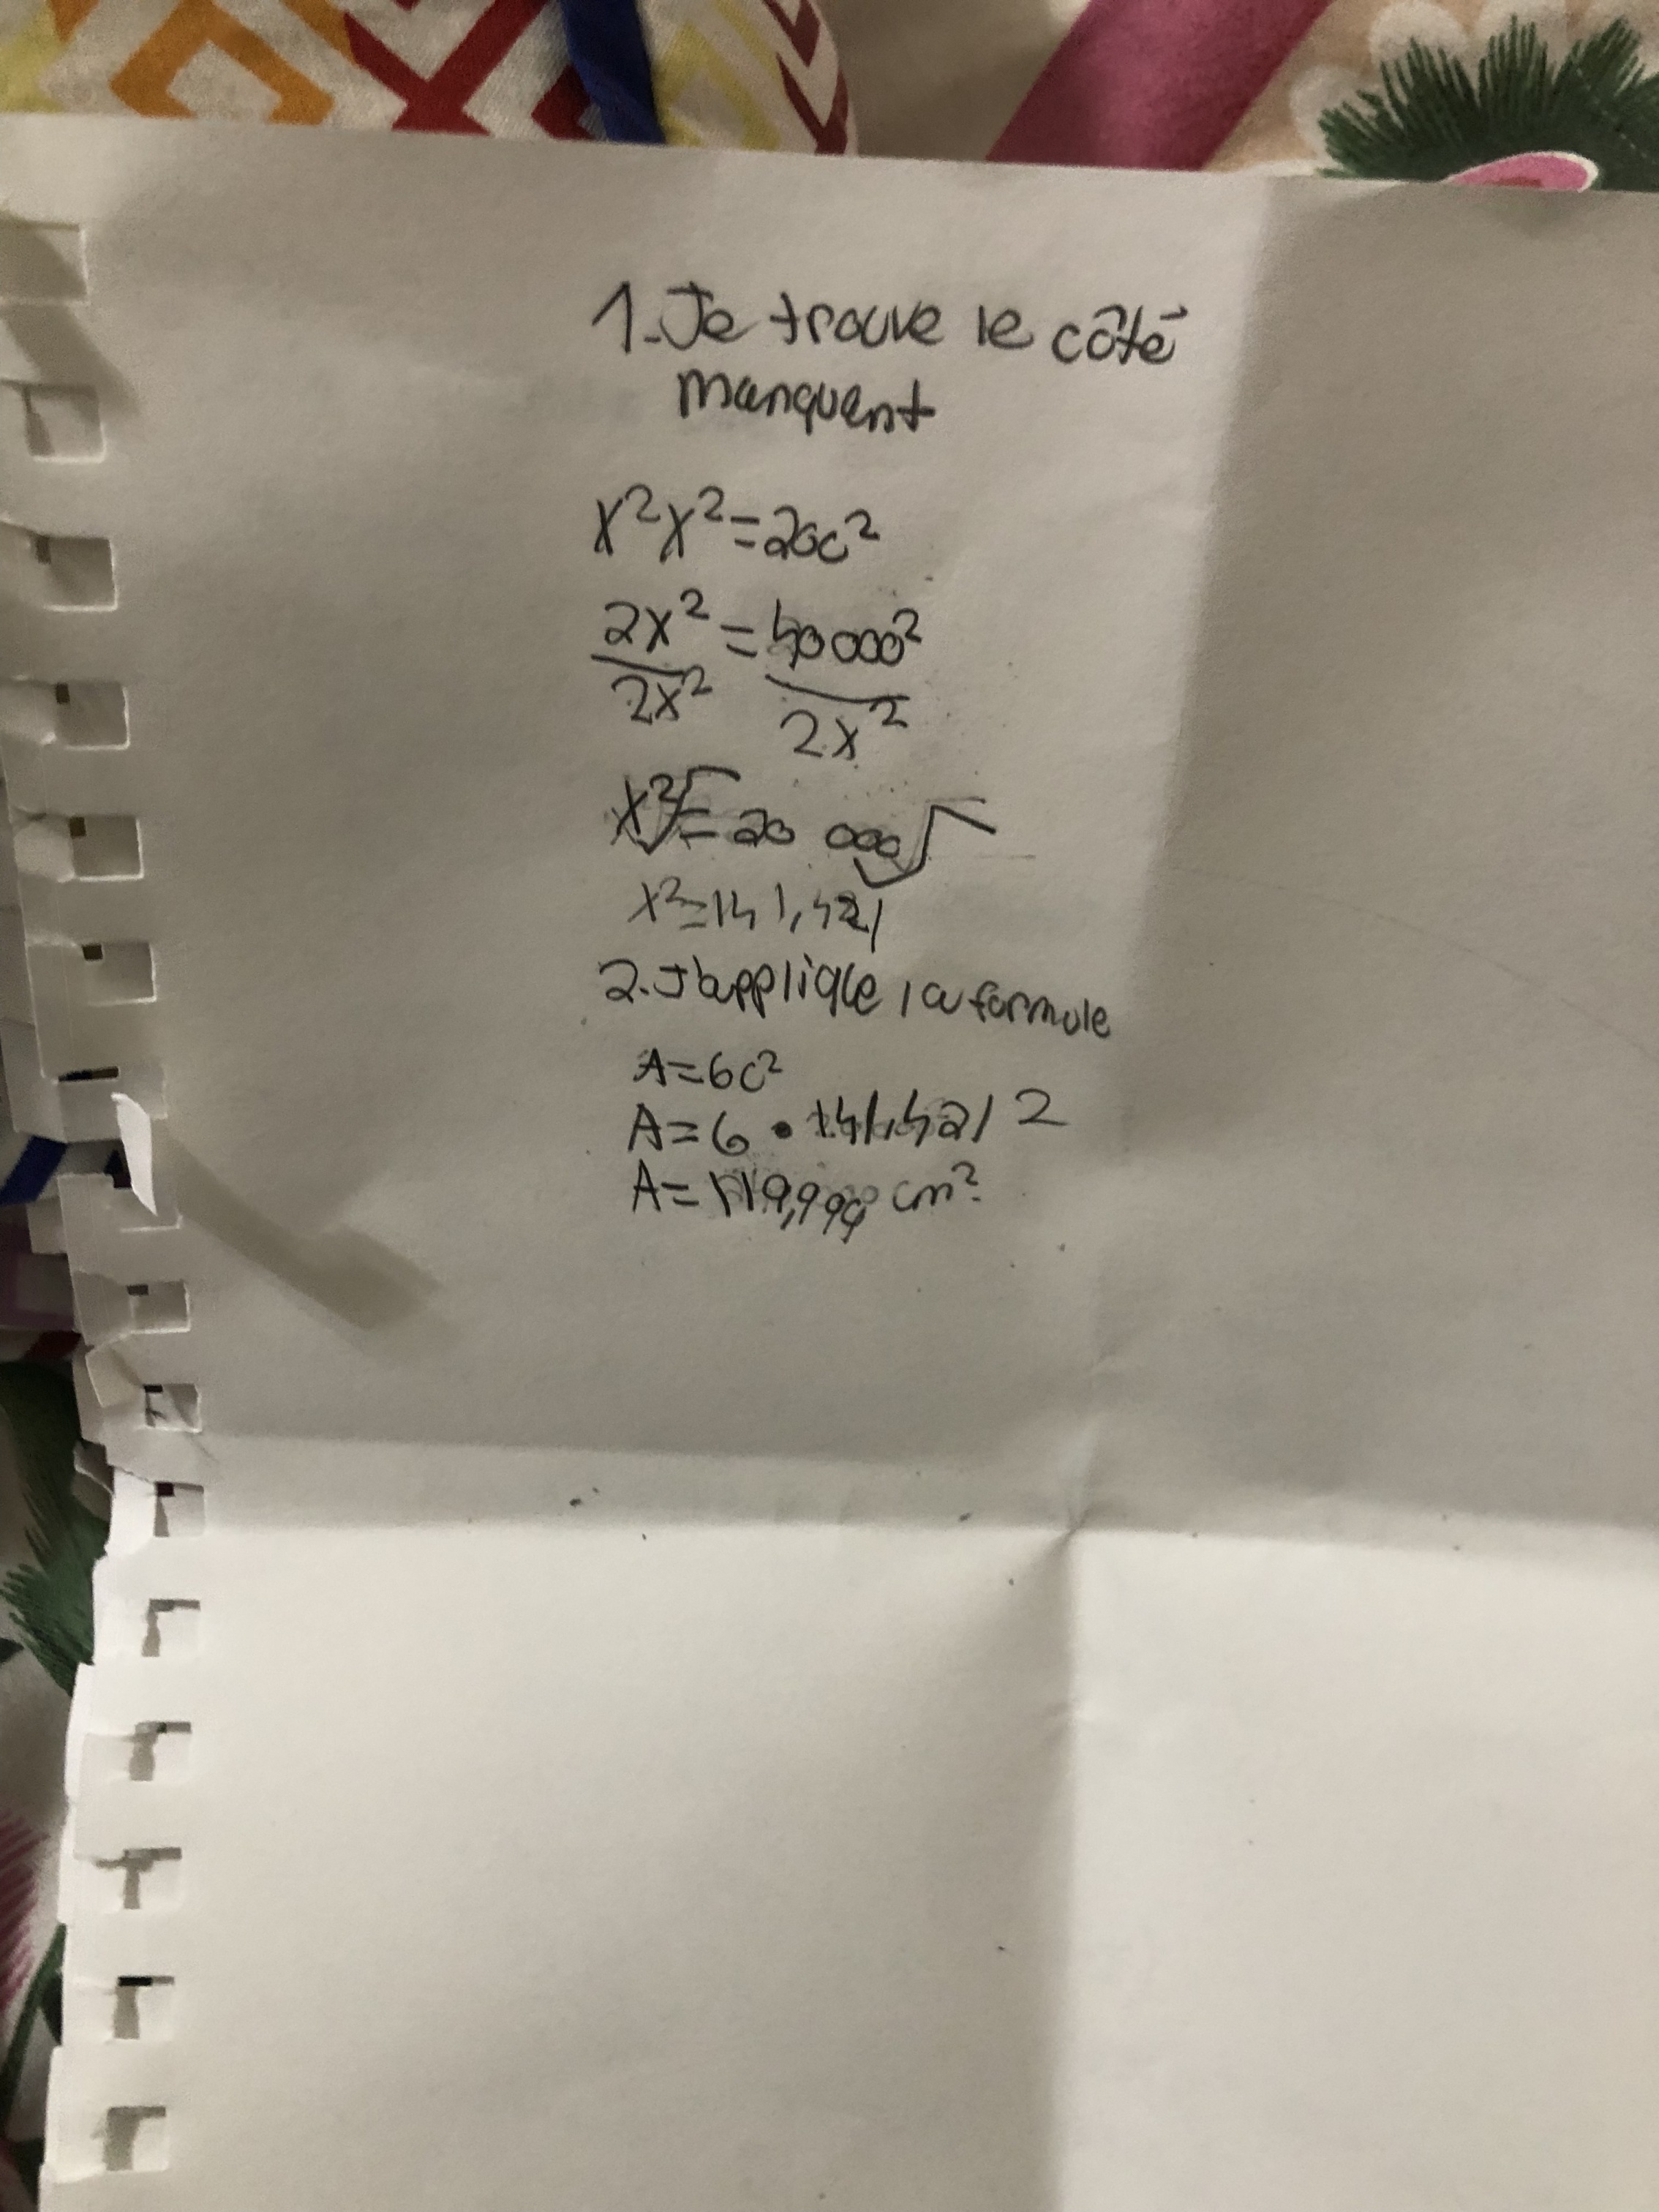 1. Je trouve le côté
manquent
x²x²=20c²
2x² = 40 000²
2x² 2x²
x²√= 20 000√
x²=141,421
2. J'applique la formule
A=6c²
A=6 • 141,421 2
A=119,999 cm²